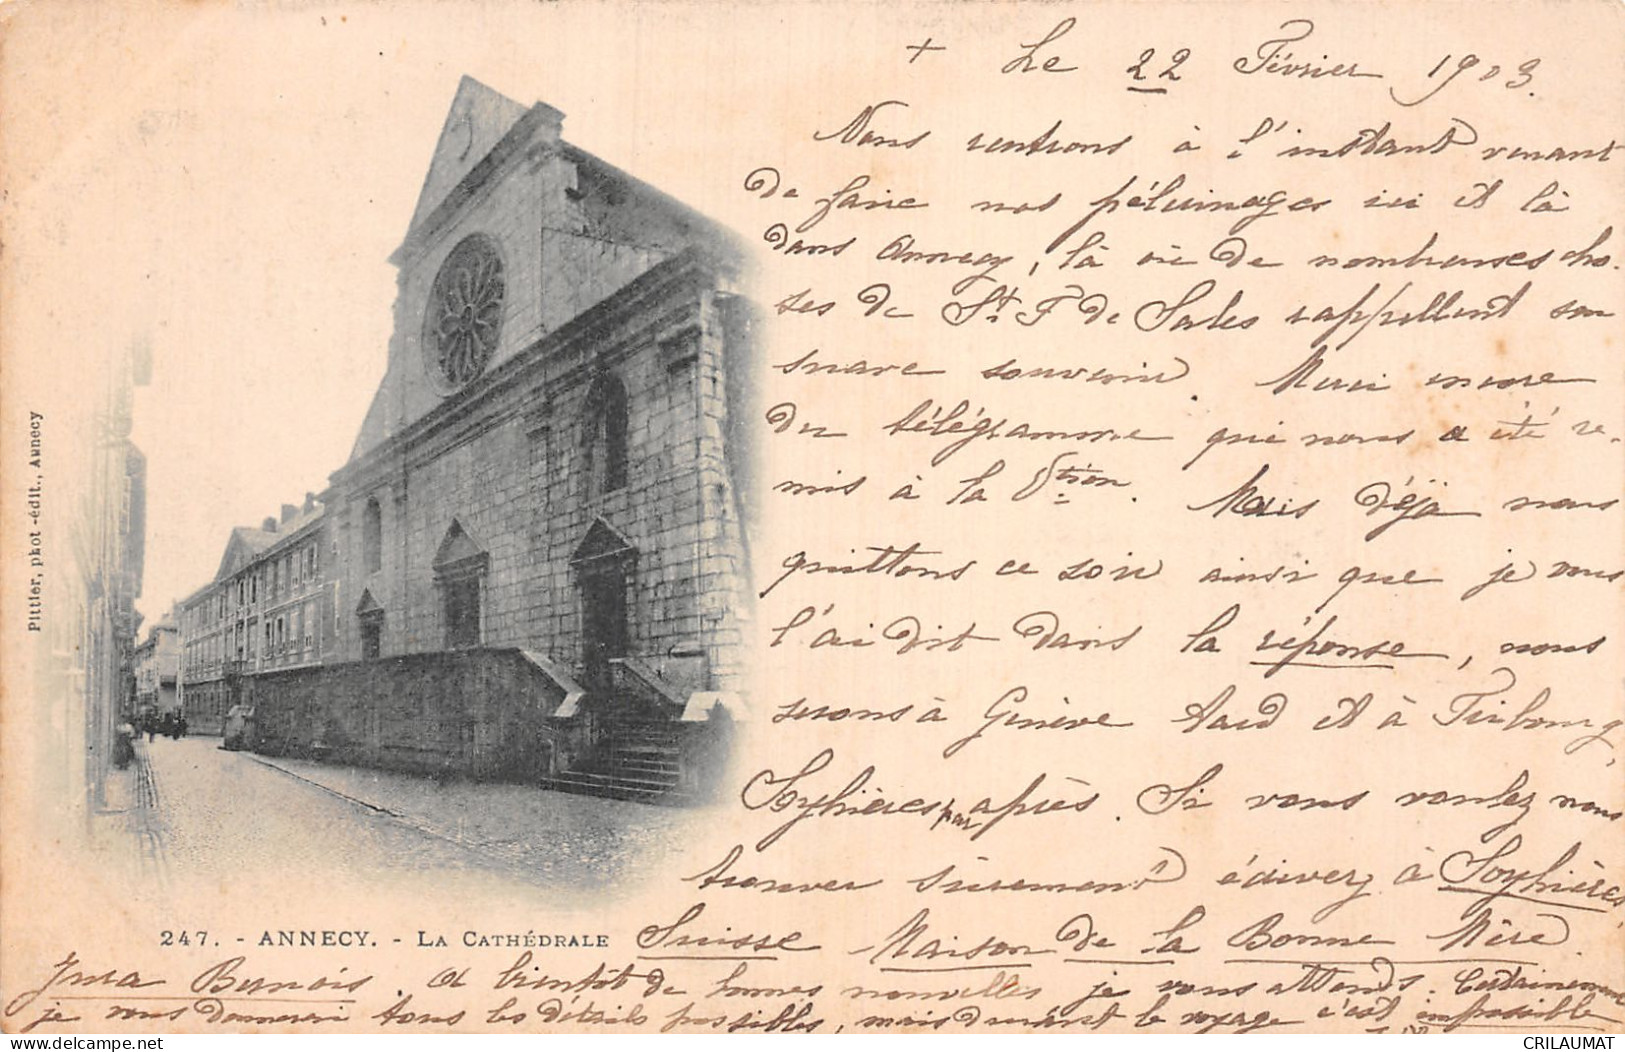 + Le 22 Février 1903.
Nous rentrons à l'instant venant
de faire nos pélerinages ici et là
dans Annecy, là où de nombreuses cho-
ses de St. F. de Sales rappellent son
suave souvenir. Merci encore
du télégramme qui nous a été re-
mis à la Stion. Mais déjà nous
quittons ce soir ainsi que je vous
l'ai dit dans la réponse, nous
serons à Genève tard et à Fribourg,
Soyhières par après. Si vous voulez nous
trouver sûrement écrivez à Soyhières,
Suisse Maison de la Bonne Mère.
Jura Bernois. A bientôt de bonnes nouvelles je vous attends. Certainement
je vous donnerai tous les détails possibles, mais durant le voyage c'est impossible
247. - ANNECY. - LA CATHÉDRALE
Pittier, phot-édit., Annecy
CRILAUMAT